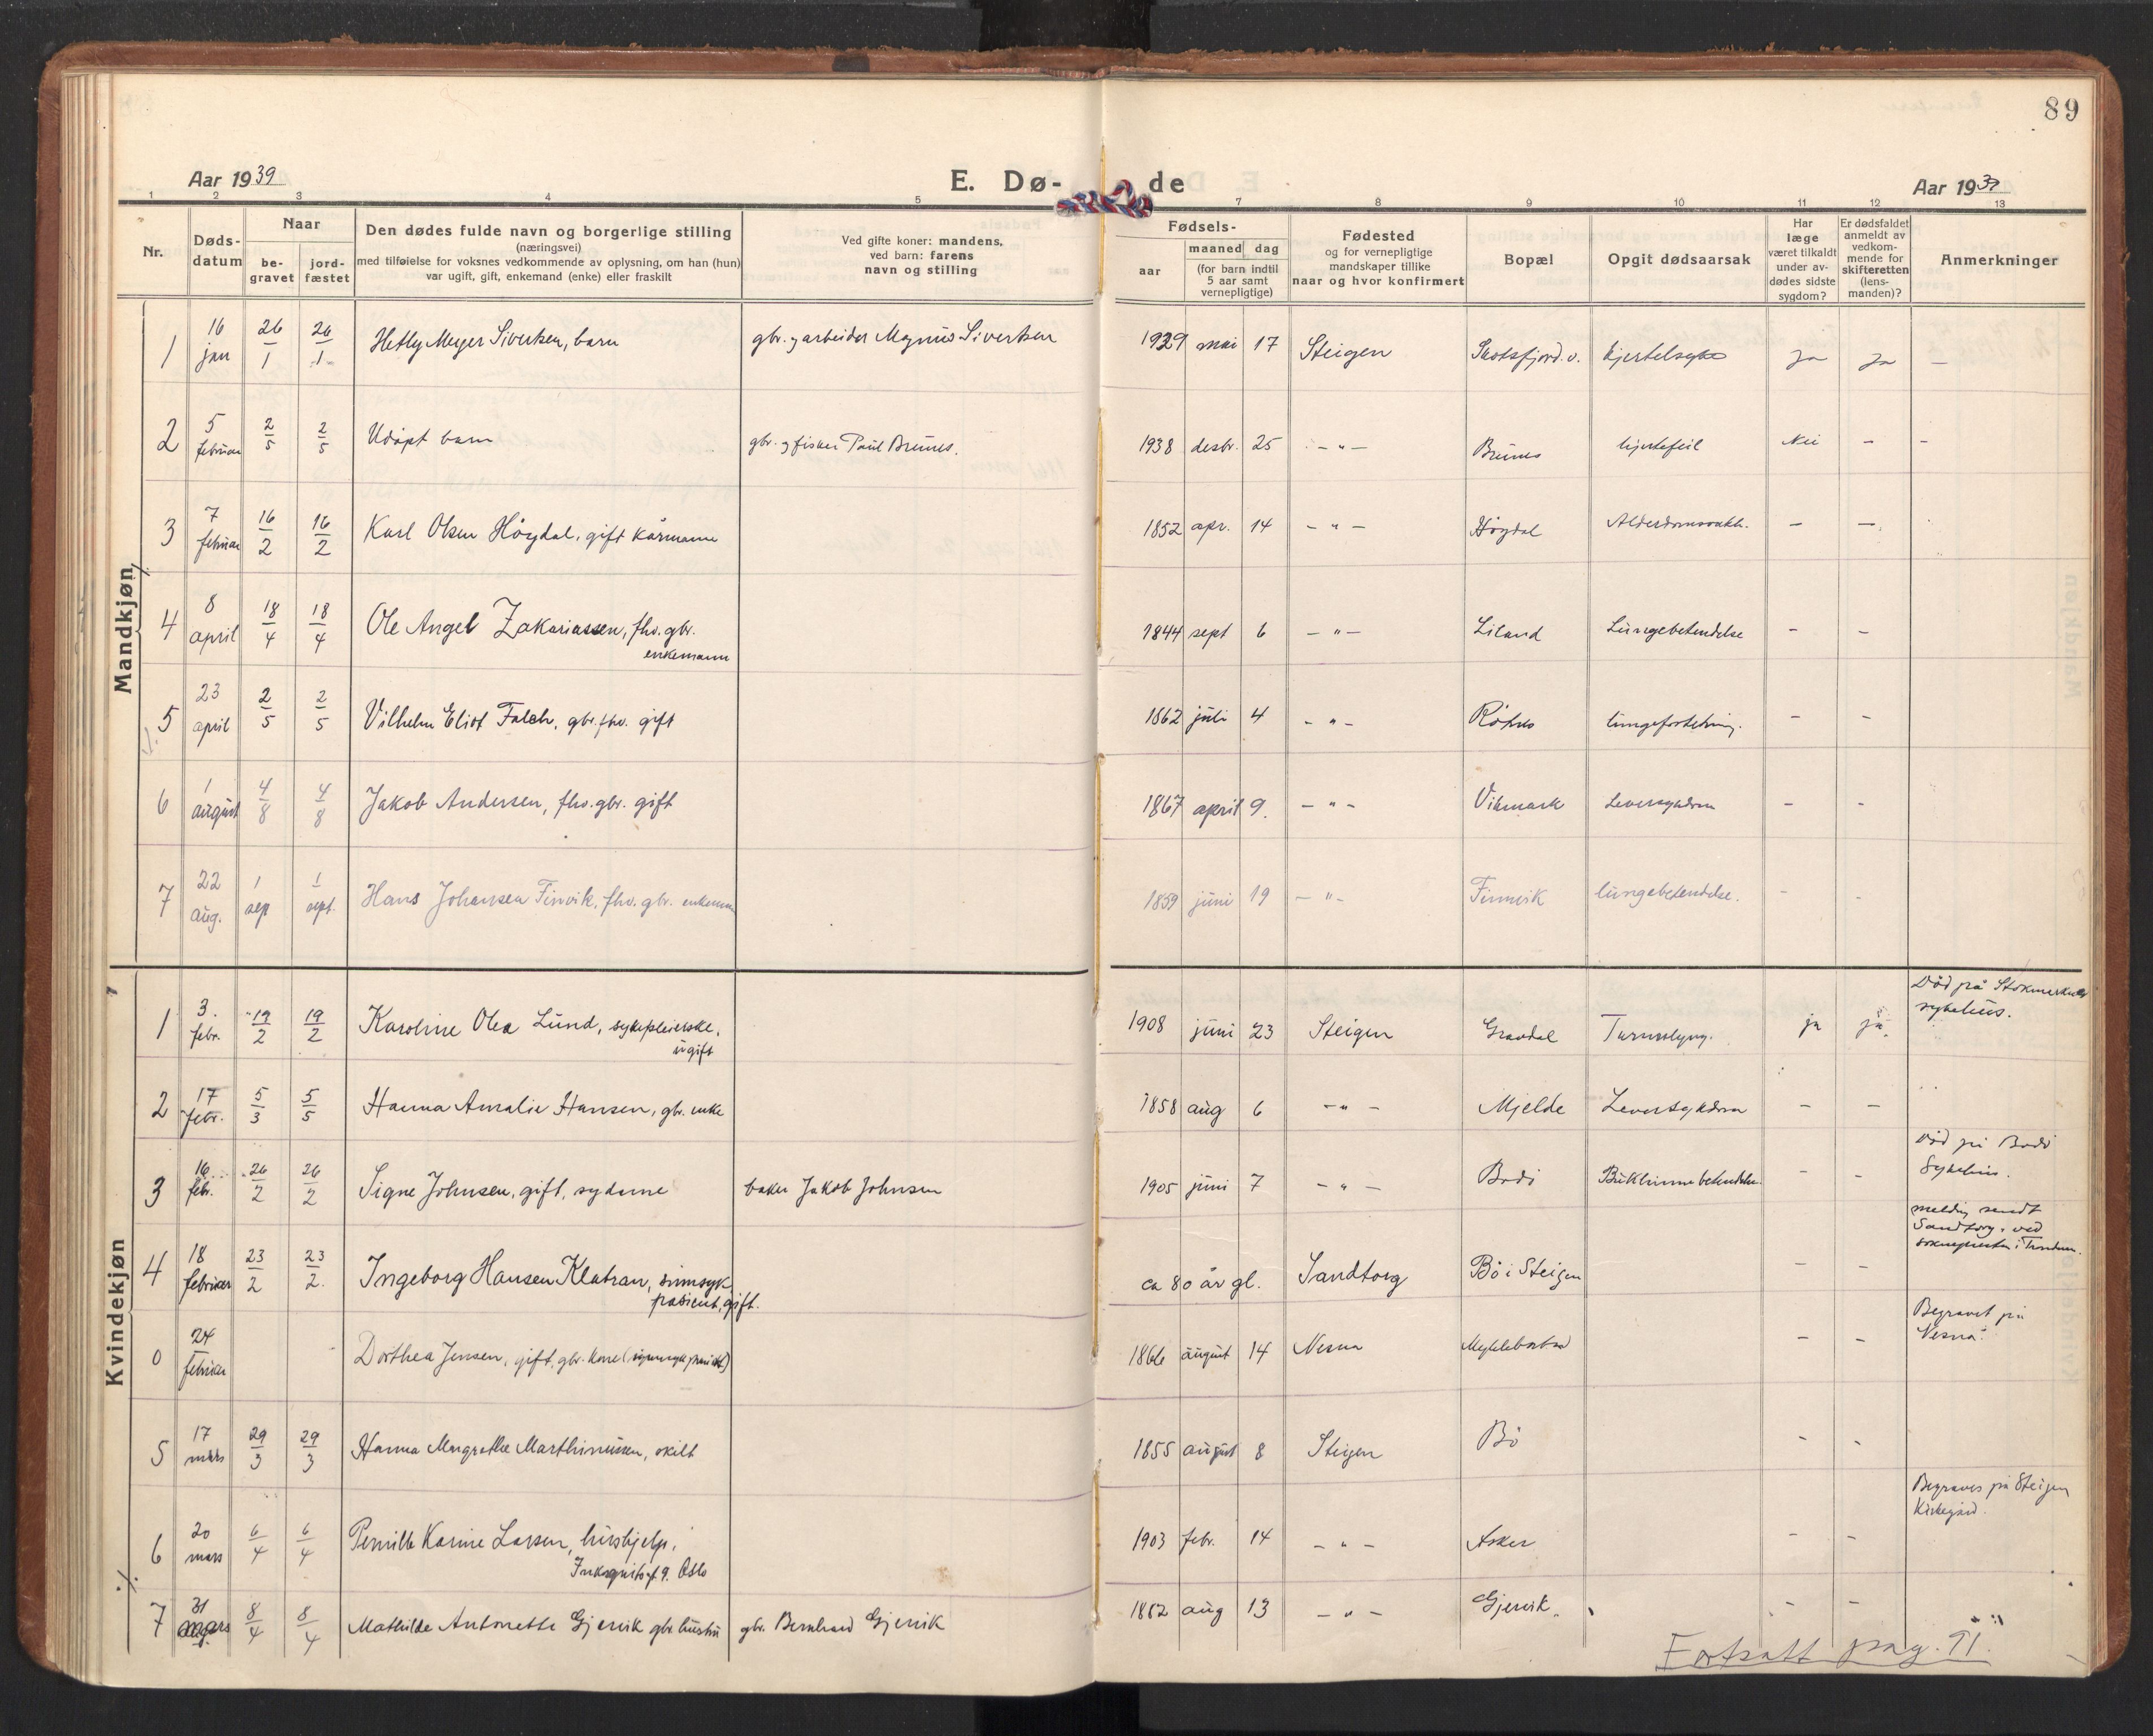 89
Aar 1939
E. Dø-
de
Aar 1939
1 2 3 4 5 7 8 9 10 11 12 13
Nr.
Døds-
datum
Naar
be-
gravet
jord-
fæstet
Den dødes fulde navn og borgerlige stilling
(næringsvei)
med tilføielse for voksnes vedkommende av oplysning, om han (hun)
var ugift, gift, enkemand (enke) eller fraskilt
Ved gifte koner: mandens,
ved barn: farens
navn og stilling
Fødsels-
aar
maaned dag
(for barn indtil
5 aar samt
vernepligtige)
Fødested
og for vernepligtige
mandskaper tillike
naar og hvor konfirmert
Bopæl
Opgit dødsaarsak
Har
læge
været tilkaldt
under av-
dødes sidste
sygdom?
Er dødsfaldet
anmeldt av
vedkom-
mende for
skifteretten
(lens-
manden)?
Anmerkninger
Mandkjøn
1 16 jan 26/1 26/1 Meyer Sivertsen, barn gbr. og arbeider Magnus Sivertsen 1929 mai 17 Steigen ja ja —
2 5 februar 2/5 2/5 Udøpt barn gbr. og fisker Paul Brunes. 1938 desbr. 25 — " — Brunes hjertefeil Nei — —
3 7 februar 16/2 16/2 Karl Olsen Høgdal, gift kårmann 1852 apr. 14 — " — Høgdal — —
4 8 april 18/4 18/4 Ole Angel Zakariassen, fhv. gbr.
enkemann
1844 sept 6 — " — Liland Lungebetendelse — —
5 23 april 2/5 2/5 Vilhelm Eliot Falch, gbr. fhv. gift 1862 juli 4 — " — — —
6 1 august 4/8 4/8 Jakob Andersen, fhv. gbr. gift 1867 april 9. — " — Vikmark Leversykdom — —
7 22 aug. 1 sep 1 sept. Hans Johansen Finvik, fhv. gbr. enkemann 1859 juni 19 — " — Finnvik lungebetendelse. — —
Kvindekjøn
1 3. febr. 19/2 19/2 Karoline Olea Lund, sykepleierske,
ugift
1908 juni 23 Steigen ja ja.
Død på Stokmarknes
sykehus.
2 17 febr. 5/3 5/5 Hanna Amalie Hansen, gbr. enke 1858 aug 6 — " — Mjelde Leversykdom — —
3 16 feb. 26/2 26/2 Signe Johnsen, gift, sydame baker Jakob Johnsen 1905 juni 7 — " — Bodø Bukhinnebetendelse. — —
Død på Bodø
Sykehus.
4 18 februar 23/2 23/2. Ingeborg Hansen Klatran, sinnsyk
pasient, gift.
ca 80 år gl. Sandtorg Bø i Steigen — —
melding sendt
Sandtorg, ved
soknepresten i Trondenes.
0 24 februar Dorthea Jensen, gift, gbr. kone 1866 august 14 Nesna — —
Begravet på
Nesna.
5 17 mars 29/3 29/3 Hanna Margrethe Marthinussen, skilt 1855 august 8 Steigen Bø — —
6 20 mars 6/4 6/4 Pernille Karine Larsen, hushjelp,
Oslo
1903 febr. 14 — " — Asker — —
Begraves på Steigen
Kirkegård.
7 31 mars 8/4 8/4 Mathilde Antonette Gjervik gbr. hustru gbr. Bernhard Gjervik 1862 aug 13 — " — Gjervik. — —
Fortsatt pag. 91.